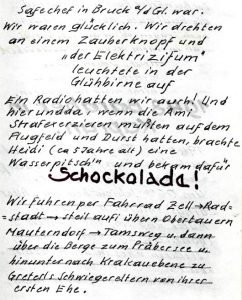 Safechef in Bruck a/d Gl. war.
Wir waren glücklich. Wir drehten
an einem Zauberknopf und
„der Elektrizifum"
leuchtete in der
Glühbirne auf
Ein Radio hatten wir auch! Und
hier und da, wenn die Ami
Strafexerzieren mußten auf dem
Flugfeld und Durst hatten, brachte
Heidi (ca 5 Jahre alt) eine
„Wasserpitsch'n" und bekam dafür
Schockolada!
Wir fuhren per Fahrrad Zell→Rad-
stadt→steil aufi übern Obertauern
Mauterndorf→Tamsweg u. dann
über die Berge zum Prebersee u.
hinunter nach Krakauebene zu
Gretels Schwiegereltern von ihrer
ersten Ehe.